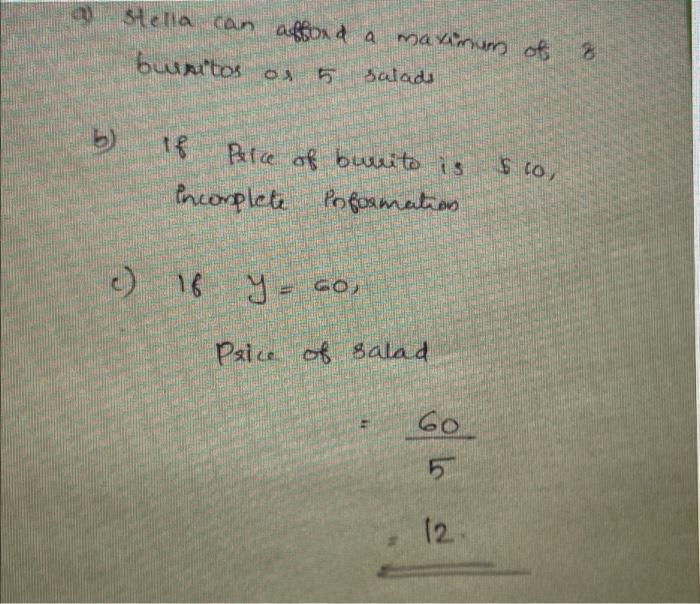 a) Stella can afford a maximum of 8
burritos or 5 salads
b) If Price of burrito is $ 10,
incomplete information
c) If y = 60,
Price of salad
= 60
5
= 12.